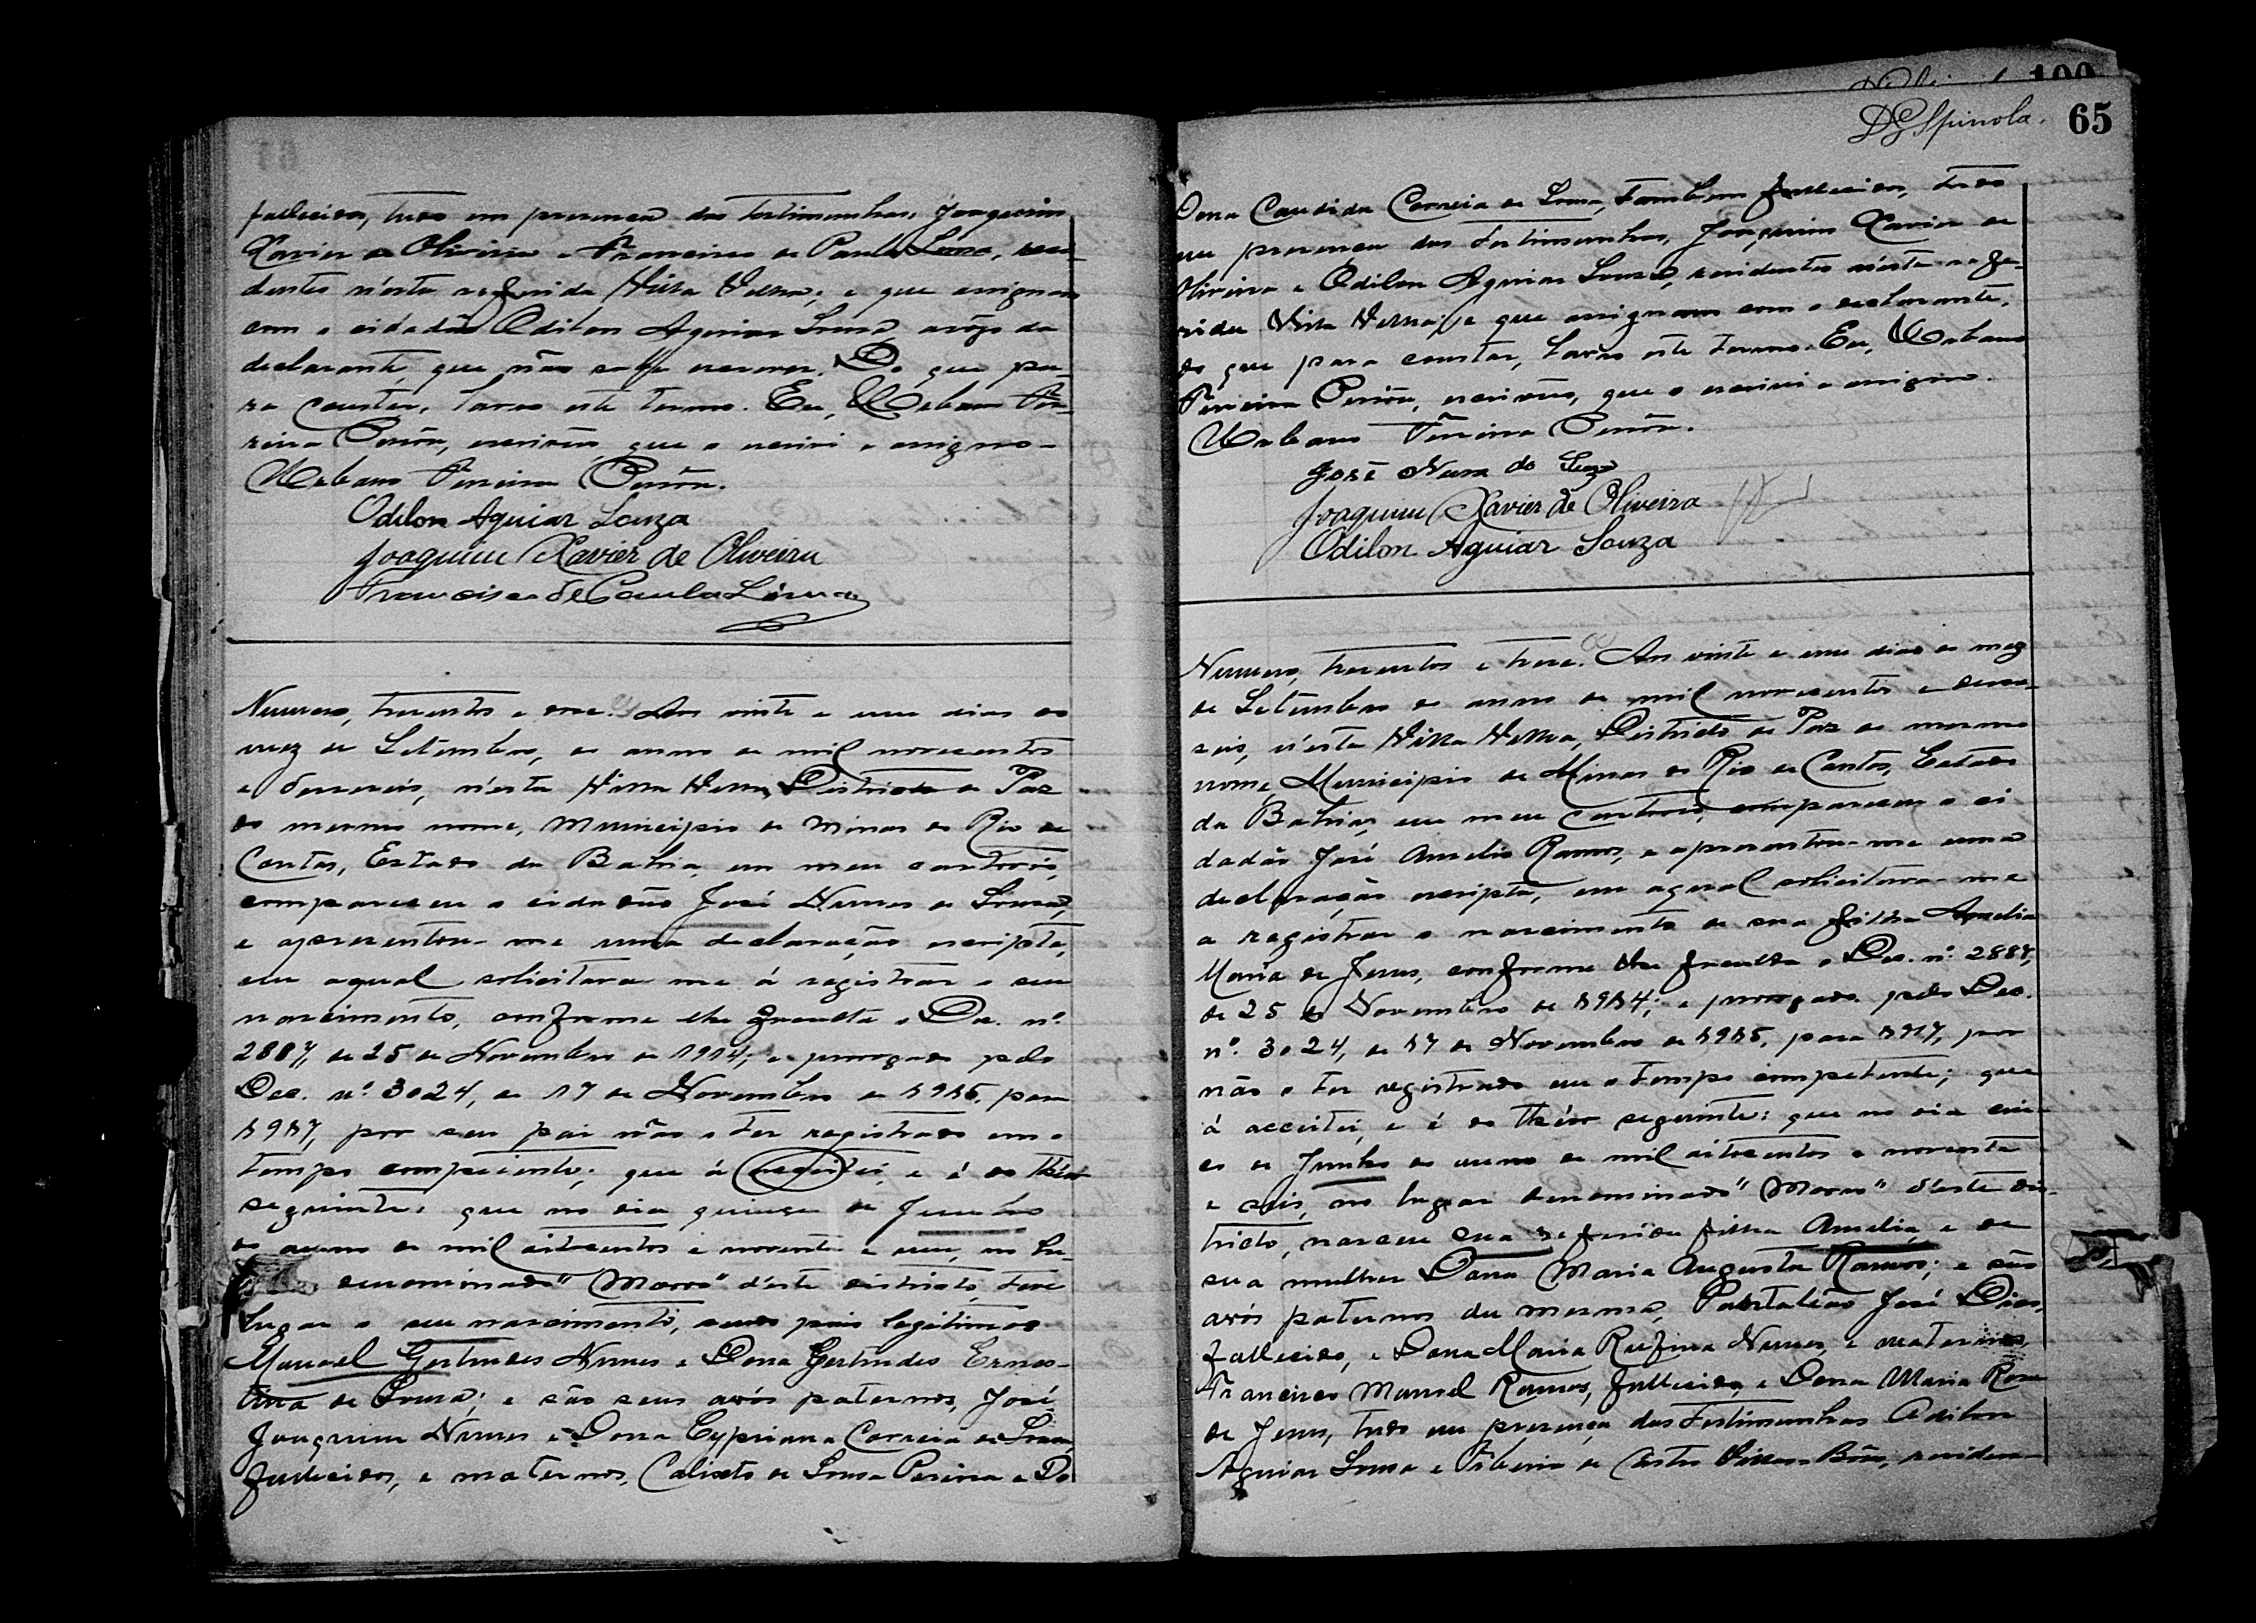 fallecidos, tudo em presença das testimunhas, Joaquim
Xavier de Oliveira e Francisco de Paula Lima, resi-
dentes n'esta referida Villa Velha; e que assignam
com o cidadão Odilon Aguiar Sousa arôgo da
declarante que não sabe escrever. Do que pa-
ra constar, lavro este termo. Eu, Urbano Fer-
reira, escrivão, que o escrivi e assigno-
Urbano Ferreira
Odilon Aguiar Souza
Joaquim Xavier de Oliveira
Francisco de Paula Lima
Numero, trezentos e onze. Aos vinte e um dias do
mez de Setembro, do anno de mil novecentos
e deseseis, n'esta Villa Velha, Districto de Paz
do mesmo nome, Municipio de Minas do Rio de
Contas, Estado da Bahia, em meu cartorio,
compareceu o cidadão José Nunes de Sousa,
e apresentou-me uma declaração escripta,
em aqual solicitava me á registrar o seu
nascimento, conforme lhe faculta o Dec. nº.
2887, de 25 de Novembro de 1914; e prorogado pelo
Dec. nº. 3024, de 17 de Novembro de 1915, para
1917, por seu pai não o ter registrado em o
tempo competente; que á acceitei, e é do théor
seguinte: que no dia quinze de Junho
do anno de mil oitocentos e noventa e um, no lu-
denominado "Morro" d'este districto, teve
lugar o seu nascimento, sendo pais legitimos
Manoel Gertrudes Nunes e Dona Gertrudes Ernes-
tina de Sousa; e são seus avós paternos, José
Joaquim Nunes e Dona Cypriana Correia de Sousa,
fallecidos, e maternos, Calixto de Sousa Pereira e Do
D G Spinola. 65
Dona Candida Correia de Sousa, tambem fallecidos, tudo
em presença das testimunhas, Joaquim Xavier de
Oliveira e Odilon Aguiar Sousa, residentes n'esta refe-
rida Villa Velha, e que assignam com o declarante.
do que para constar, lavro este termo. Eu, Urbano
Ferreira, escrivão, que o escrivi e assigno.
Urbano Ferreira
José Nunes de Souza
Joaquim Xavier de Oliveira
Odilon Aguiar Souza
Numero, trezentos e treze. Aos vinte e um dias do mez
de Setembro do anno de mil novecentos e dese-
seis, n'esta Villa Velha, Districto de Paz do mesmo
nome, Municipio de Minas do Rio de Contas, Estado
da Bahia, em meu cartorio, compareceu o ci
dadão José Amelio Ramos, e apresentou-me uma
declaração escripta, em aqual solicitava-me
a registrar o nascimento de sua filha Amelia
Maria de Jesus, conforme lhe faculta o Dec. nº. 2887,
de 25 de Novembro de 1914; e prorogado pelo Dec.
nº. 3024, de 17 de Novembro de 1915, para 1917, por
não o ter registrado em o tempo competente; que
á acceitei, e é do théor seguinte: que no dia cin-
co de Junho do anno de mil oitocentos e noventa
e seis, no lugar denominado "Morro" d'este dis-
tricto, nasceu sua referida filha Amelia, e de
sua mulher Dona Maria Augusta Ramos; e são
avós paternos da mesma, Pantaleão José Dias,
fallecido, e Dona Maria Rufina Nunes, e maternos,
Francisco Manoel Ramos, fallecido, e Dona Maria Rosa
de Jesus, tudo em presença das testimunhas Odilon
Aguiar Sousa e de Castro Villas-Bôas, residen-